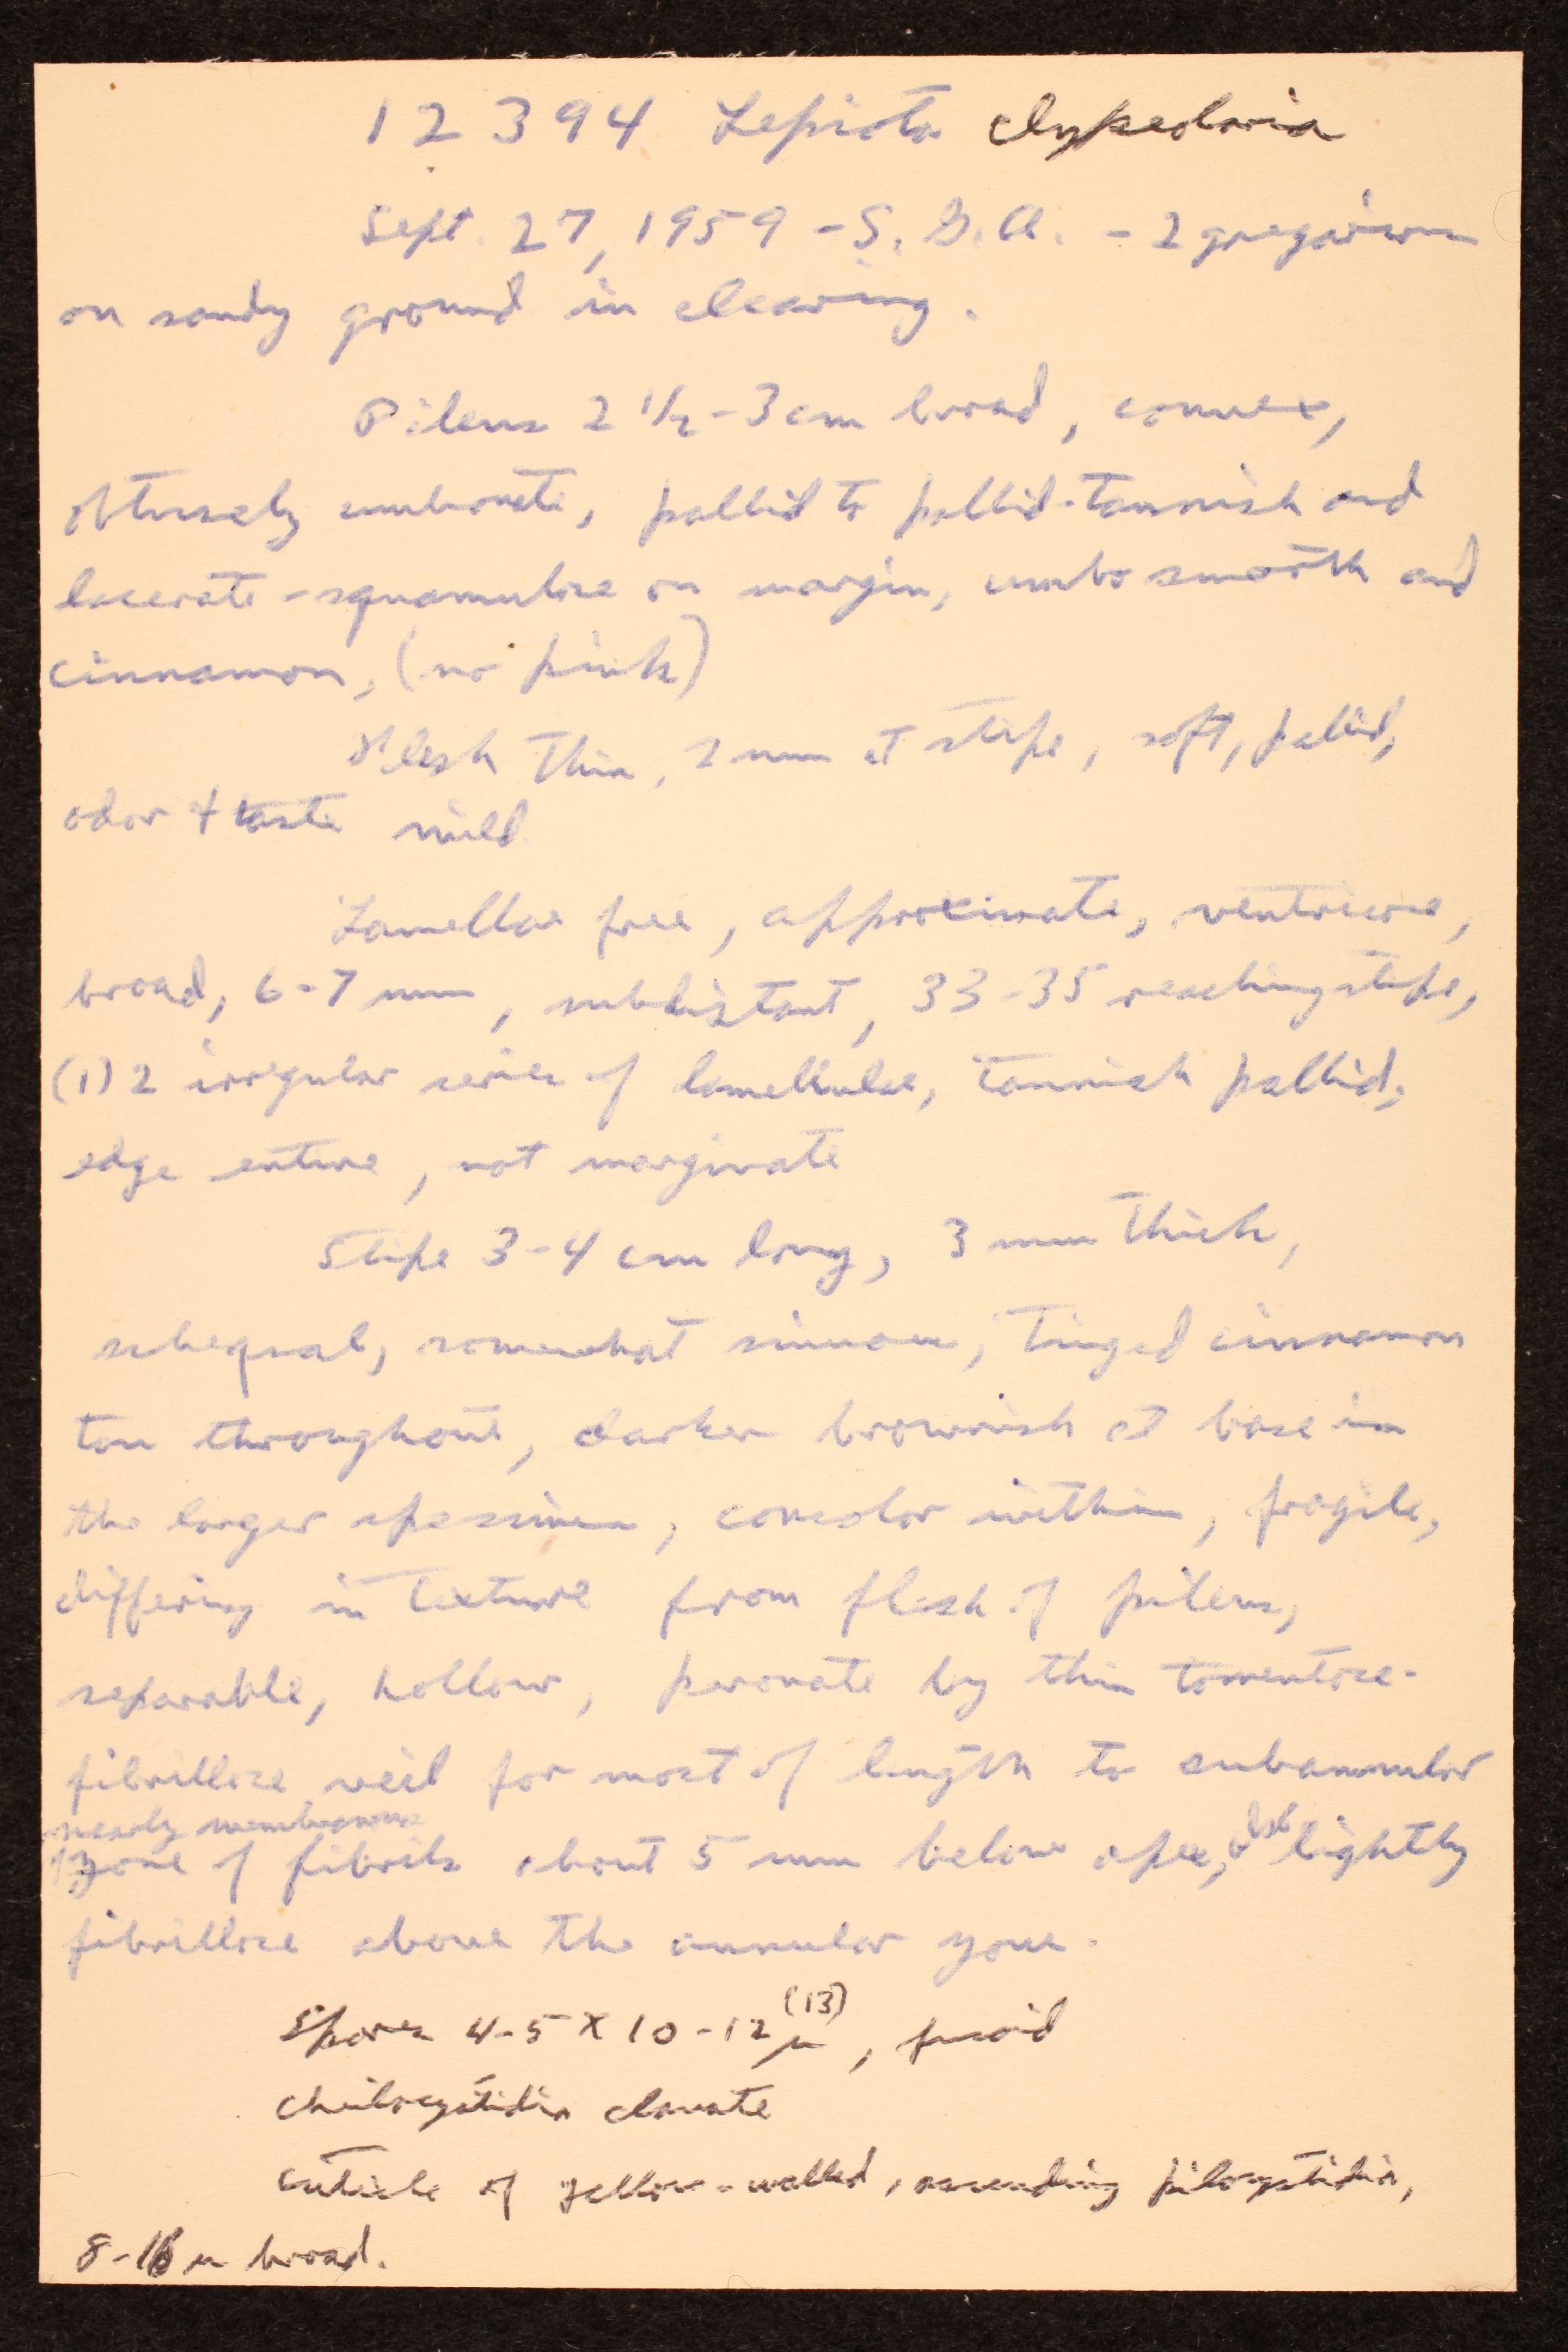 12394 Lepiota clypeolaria
Sept. 27, 1959 - S. G. A. - 2 gregarious
on sandy ground in clearing.
Pileus 2 1/2 - 3 cm broad, convex,
obtusely umbonate, pallid to pallid-tannish and
lacerate-squamulose on margin, umbo smooth and
cinnamon, (no pink)
Flesh thin, 2 mm at stipe, soft, pallid,
odor & taste mild
Lamellae free, approximate, ventricose,
broad, 6-7 mm, subdistant, 33-35 reaching stipe,
(1) 2 irregular series of lamellulae, tannish pallid,
edge entire, not marginate
Stipe 3-4 cm long, 3 mm thick,
subequal, somewhat sinuous, tinged cinnamon
tan throughout, darker brownish at base in
the larger specimen, concolor within, fragile,
differing in texture from flesh of pileus,
separable, hollow, peronate by thin tomentose-
fibrillose veil for most of length to subannular
nearly membranous
zone of fibrils about 5 mm below apex, also lightly
fibrillose above the annular zone.
Spores 4-5 x 10-12 (13) µ, fusoid
cheilocystidia clavate
cuticle of yellow-walled, ascending pilocystidia,
8-16 µ broad.